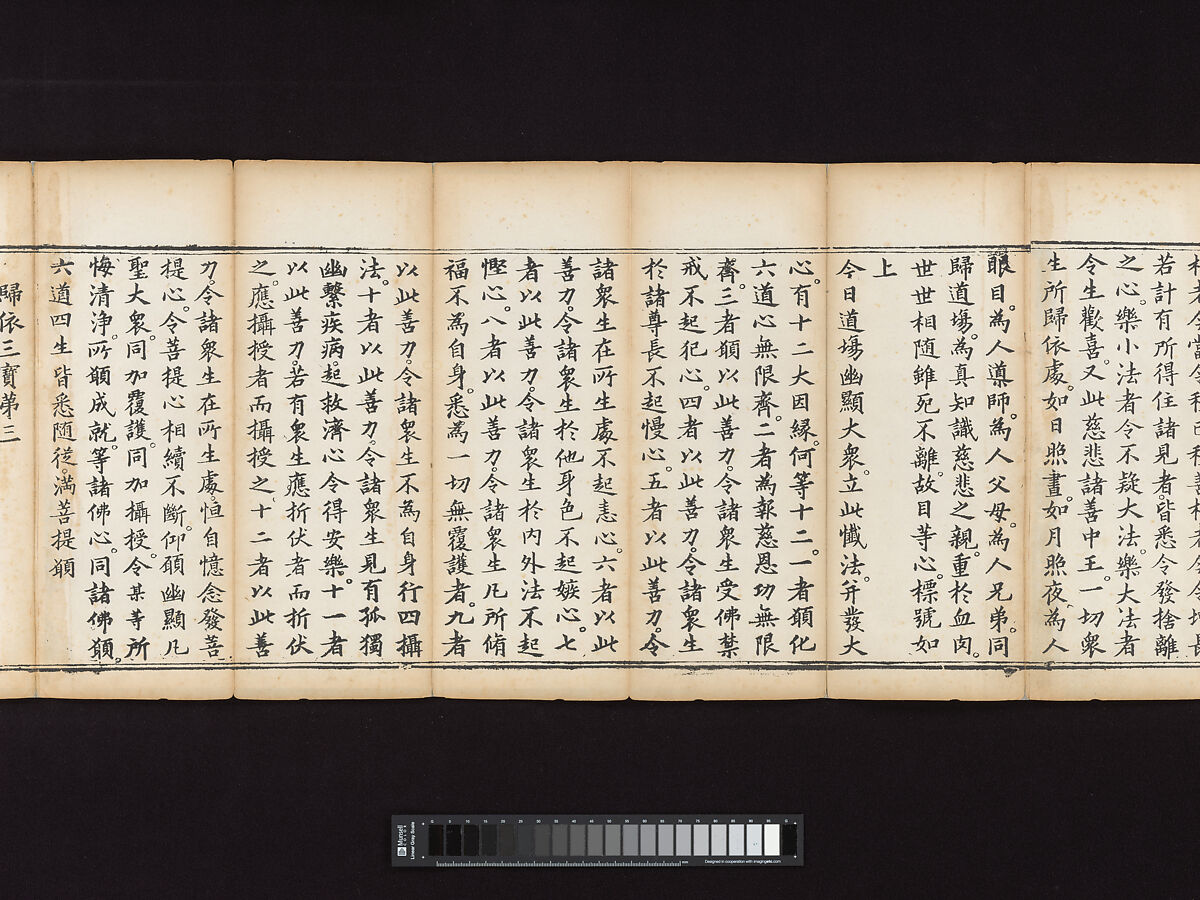 若計有所得住諸見者。皆悉令發捨離
之心。樂小法者令不疑大法。樂大法者
令生歡喜。又此慈悲諸善中王。一切衆
生所歸依處。如日照晝。如月照夜。為人
眼目。為人導師。為人父母。為人兄弟。同
歸道塲。為真知識慈悲之親。重於血肉。
世世相随雖死不離。故目等心。標號如
上
今日道塲幽顯大衆。立此懺法。并發大
心。有十二大因縁。何等十二。一者願化
六道心無限齊。二者為報慈恩功無限
齊。三者願以此善力。令諸衆生受佛禁
戒不起犯心。四者以此善力。令諸衆生
於諸尊長不起慢心。五者以此善力。令
諸衆生在所生處不起恚心。六者以此
善力。令諸衆生於他身色不起嫉心。七
者以此善力。令諸衆生於内外法不起
慳心。八者以此善力。令諸衆生凡所脩
福不為自身。悉為一切無覆護者。九者
以此善力。令諸衆生不為自身行四攝
法。十者以此善力。令諸衆生見有孤獨
幽繫疾病起救濟心令得安樂。十一者
以此善力若有衆生應折伏者而折伏
之。應攝授者而攝授之。十二者以此善
力。令諸衆生在所生處。恒自憶念發菩
提心。令菩提心相續不斷。仰願幽顯凡
聖大衆。同加覆護。同加攝授。令某等所
悔清浄。所願成就。等諸佛心。同諸佛願。
六道四生皆悉随從。滿菩提願
歸依三寶第三
Munsell COLOR
Linear Gray Scale
Designed in cooperation with imagingetc.com